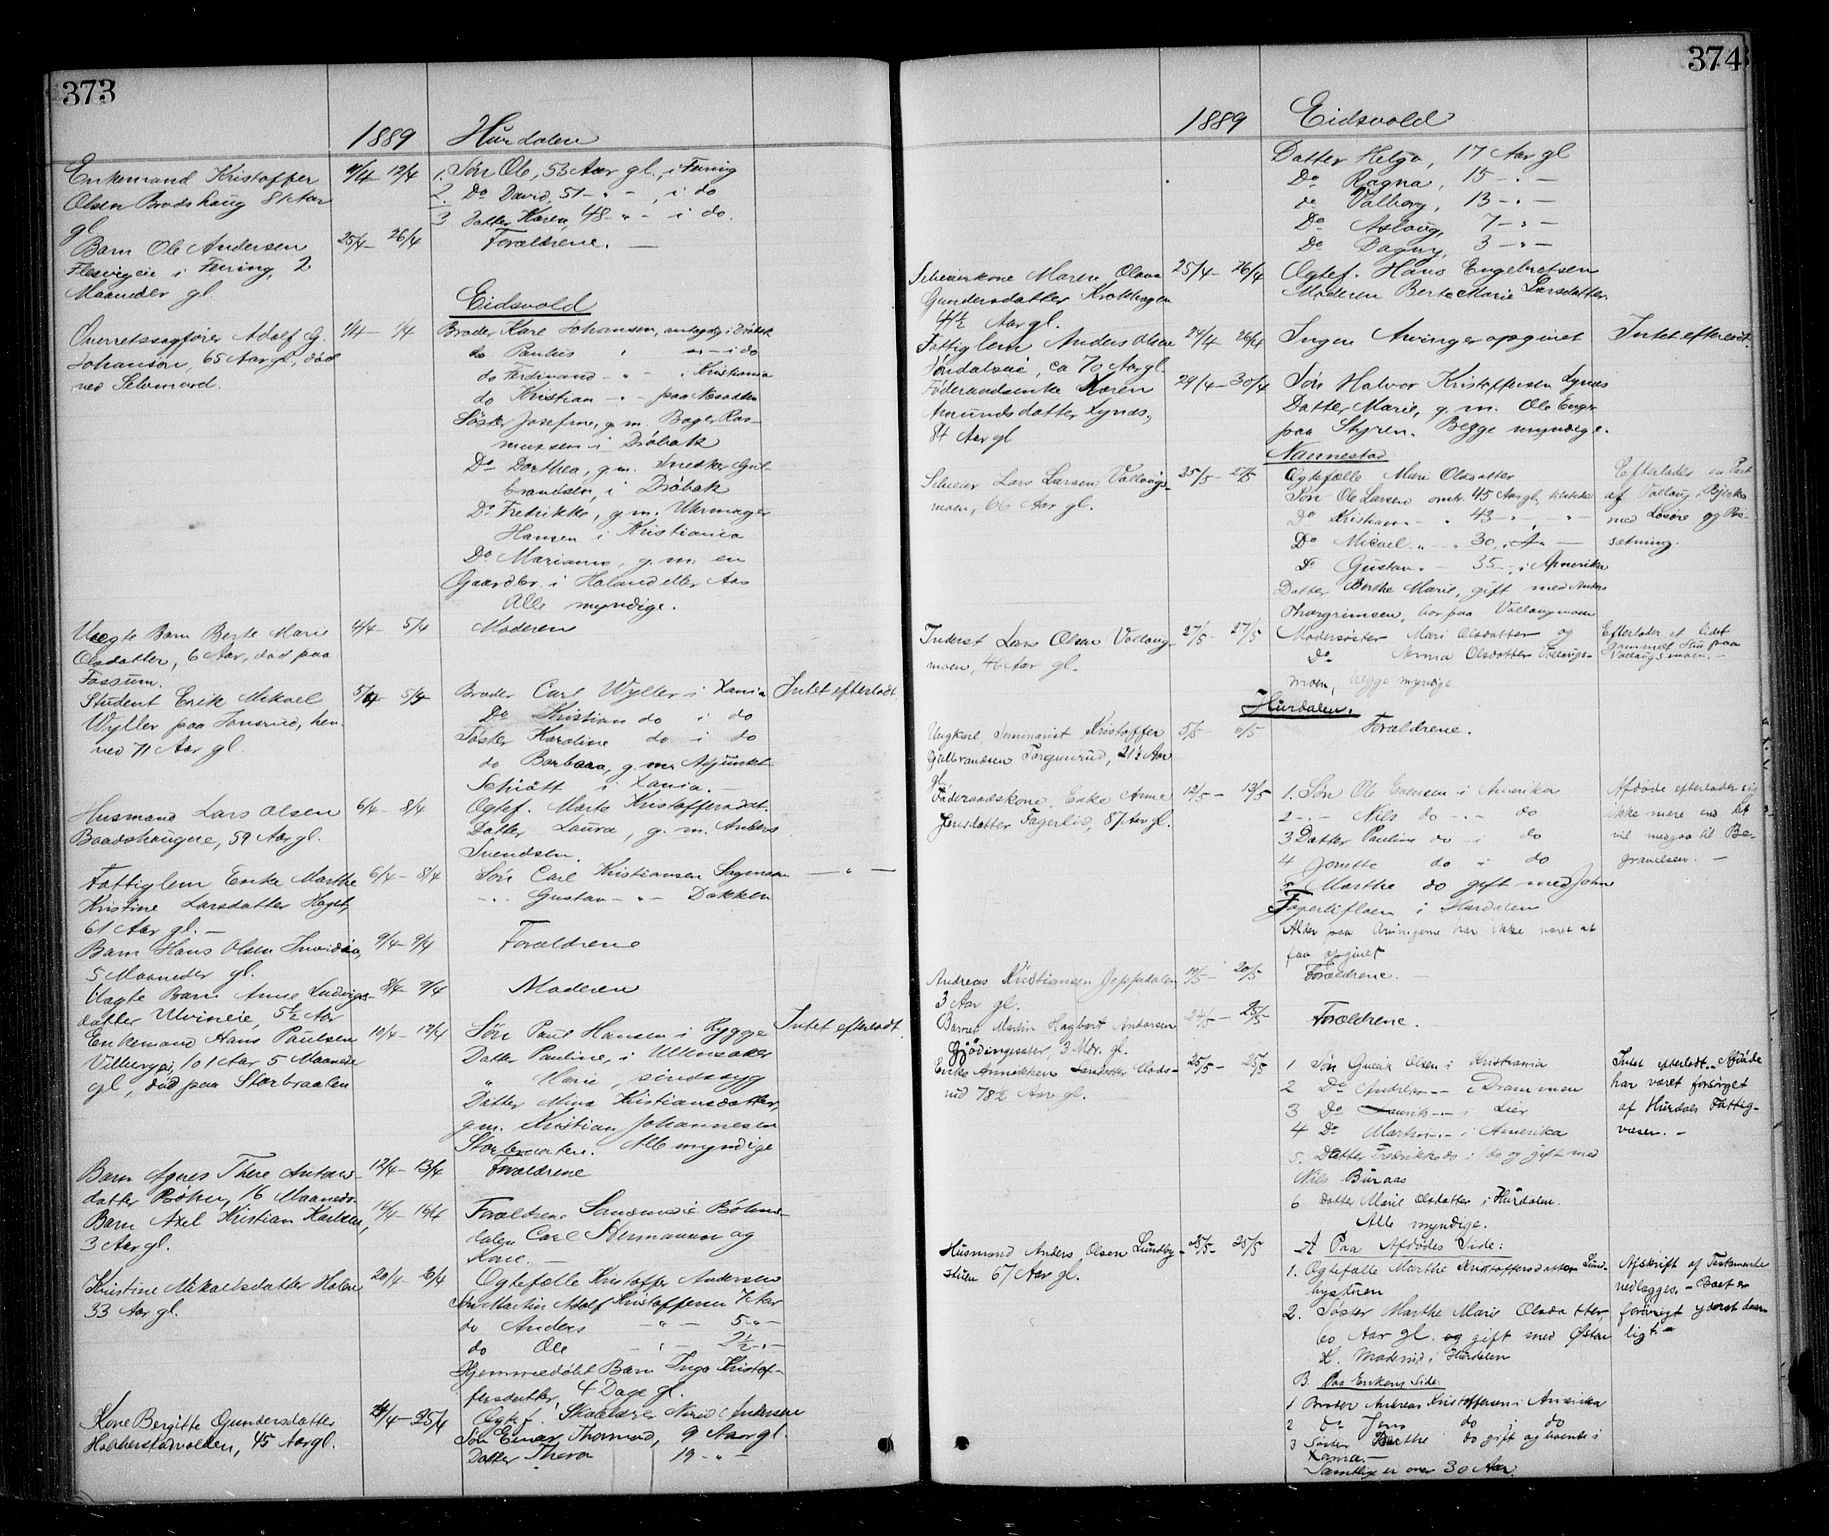 373
1889 Hurdalen
Enkemand Kristoffer 11/4 12/4 1. Søn Ole, 53 Aar gl., i Feiring
Olsen Brodshaug 81 Aar 2. Do David, 51 - " - , i do
gl 3 Datter Karen, 48 - " - i do.
Barn Ole Andersen 25/4 - 26/4 Forældrene. —
Flesvigeie i Feiring, 2
Maaneder gl.
Eidsvold
Overretssagfører Adolf G. 1/4 - 1/4 Broder Karl Johansen, i Drøbak
Johansen, 65 Aar gl., død do Paulus i do
ved Selvmord. do Ferdinand - " - i Kristiania
do Kristian - " - paa Nesodden
Søster Josefine, g. m. Bager Ras-
mussen i Drøbak
Do Dorthea, g. m. Snedker Gul-
brandsen, i Drøbak
Do Fredrikke, g. m. Uhrmager
Hansen i Kristiania
Do Marianne, g. m. en
Gaardbr. i Holand eller Aas
Alle myndige.
Uægte Barn Berte Marie 4/4 - 5/4 Moderen
Olsdatter, 6 Aar, død paa
Fossum.
Student Erik Mikael 5/4 - 5/4 Broder Carl Wyller i Xania Intet efterladt
Wyller paa hen- Do Kristian do i do
ved 71 Aar gl. Søster Karoline do i do
do Barbara, g. m. Adjunkt
Schiøtt i Xania. —
Husmand Lars Olsen 6/4 - 8/4 Ogtef. Marte Kristoffersdat.
Baadshaugeie, 59 Aar gl. Datter Laura, g. m. Anders
Svendsen.
Fattiglem Enke Marthe 6/4 - 8/4 Søn Carl Kristiansen Sagmoen — " —
Kristine Larsdatter Hageb, - " - Gustav - " - Dokken
61 Aar gl. —
Barn Hans Olsen 9/4 - 9/4 Forældrene
5 Maaneder gl.
Uægte Barn Anne Ludvigs- 8/4 - 9/4 Moderen
datter Ulvineie, 5½ Aar
Enkemand Hans Paulsen 10/4 - 12/4 Søn Paul Hansen i Rygge Intet efterladt
101 Aar 5 Maaneder Datter Pauline, i Ullensaker
gl, død paa Storbraaten " Marie, sindssyg
Datter Mina Kristiansdatter,
g. m. Kristian Johannesen
Alle myndige
Barn Agnes There Antons- 12/4 - 13/4 Forældrene
datter Bøhn, 16 Maaneder
Barn Axel Kristian Karlsen, 14/4 - 16/4 Forældrene Bøhns-
3 Aar gl. dalen Carl Hermansen og
Kone. —
Kristine Mikaelsdatter Holen 20/4 - 6/4 Ogtefælle Kristoffer Andersen
33 Aar gl. Søn Martin Adolf Kristoffersen 7 Aar
do Anders - " - 5 - " -
do Ole - " - 2½ - " -
Hjemmedøbt Barn Inga Kristof-
fersdatter, 4 Dage gl.
Kone Bergitte Gundersdatter 24/4 - 25/4 Ogtef. Skolelærer Andersen
45 Aar gl. Søn Einar Thormod, 9 Aar gl.
Datter Thora 19 - " -
374
1889 Eidsvold
Datter Helga, 17 Aar gl
Do Ragna, 15 - " -
do Valborg, 13 - " -
Do Aslaug, 7 - " -
Do Dagny, 3 - " -
Selveierkone Maren Olava 25/4 - 26/4 Ogtef. Hans Engebretsen
Gundersdatter Moderen Berte Marie Larsdatter.
41½ Aar gl.
Fattiglem Anders Olsen 24/4 - 26/4 Ingen Arvinger opgivet Intet efterladt.
ca 70 Aar gl.
Føderaadsenke Karen 29/4 - 30/4 Søn Halvor Kristoffersen Lynæs
Amundsdatter Lynæs, Datter Marie, g. m. Ole Enger
84 Aar gl paa Styren. Begge myndige.
Nannestad
Selveier Lars Larsen Vollaugs- 25/5 - 27/5 Ogtefælle Mari Olsdatter Efterlader en Part
moen, 66 Aar gl. Søn Ole Larsen omtr. 45 Aar gl. tilstede af Vollaug
Do Kristian - " - 43 - " - med Løsøre og Be-
Do Micael - " - 30 - " - sætning.
Do Gustav - 35 - i Amerika
Datter Berthe Marie, gift med Anders
Thorgrimsen, bor paa Vollaugmoen
Inderst Lars Olsen Vollaug- 27/5 - 27/5 Modersøster Mari Olsdatter og Efterlader et lidet
moen, 46 Aar gl. Do Olsdatter Vollaugs- gammelt Hus paa
moen, begge myndige Vollaugsmoen. —
Hurdalen.
Ungkarl, Seminarist Kristoffer 5/5 - 6/5 Forældrene.
Gulbrandsen 21½ Aar
gl.
Føderaadskone, Enke Anne 12/5 - 13/5 1. Søn Ole Evensen i Amerika Afdøde efterlader sig
Jensdatter Fagerlid, 87 Aar gl. 2 - " - Nils do - " - do ikke mere end det
3 Datter Pauline do - i do vil medgaa til Be-
4 Jonette do i do gravelsen. —
5 Marthe do gift med John
i Hurdalen
Alder paa Arvingerne har ikke været at
faa opgivet
Andreas Kristiansen Jeppedalen 19/5 - 20/5 Forældrene. —
3 Aar gl.
Barnet Martin Hagbart Andersen 24/5 - 25/5 Forældrene.
3 Mdr. gl.
Enke Annikken 25/5 - 25/5 1 Søn Olsen i Kristiania Intet efterladt. Afdøde
rud 78½ Aar gl. 2 Do Andreas - i Drammen har været forsørget
3 Do - i Lier af Hurdals Fattig-
4 Do Martin - i Amerika væsen. —
5. Datter i do og gift med
Nils Buraas
6 Datter Marie Olsdatter i Hurdalen.
Alle myndige.
Husmand Anders Olsen Lundby- 25/5 - 25/5 A Paa Afdødes Side:
stuen 67 Aar gl. 1. Ogtefælle Marthe Kristoffersdatter Lund- Afskrift af Testamente
bystuen vedlægges. - Boet er
2. Søster Marthe Marie Olsdatter, forøvrigt yderst daar-
60 Aar gl. og gift med Østen ligt —
H. i Hurdalen
B. Paa Enkens Side.
1 Broder Andreas Kristoffersen i Amerika
2 do Jens do i do
3 Søster Berthe do gift og boende i
Xania. —
Samtlige er over 30 Aar.